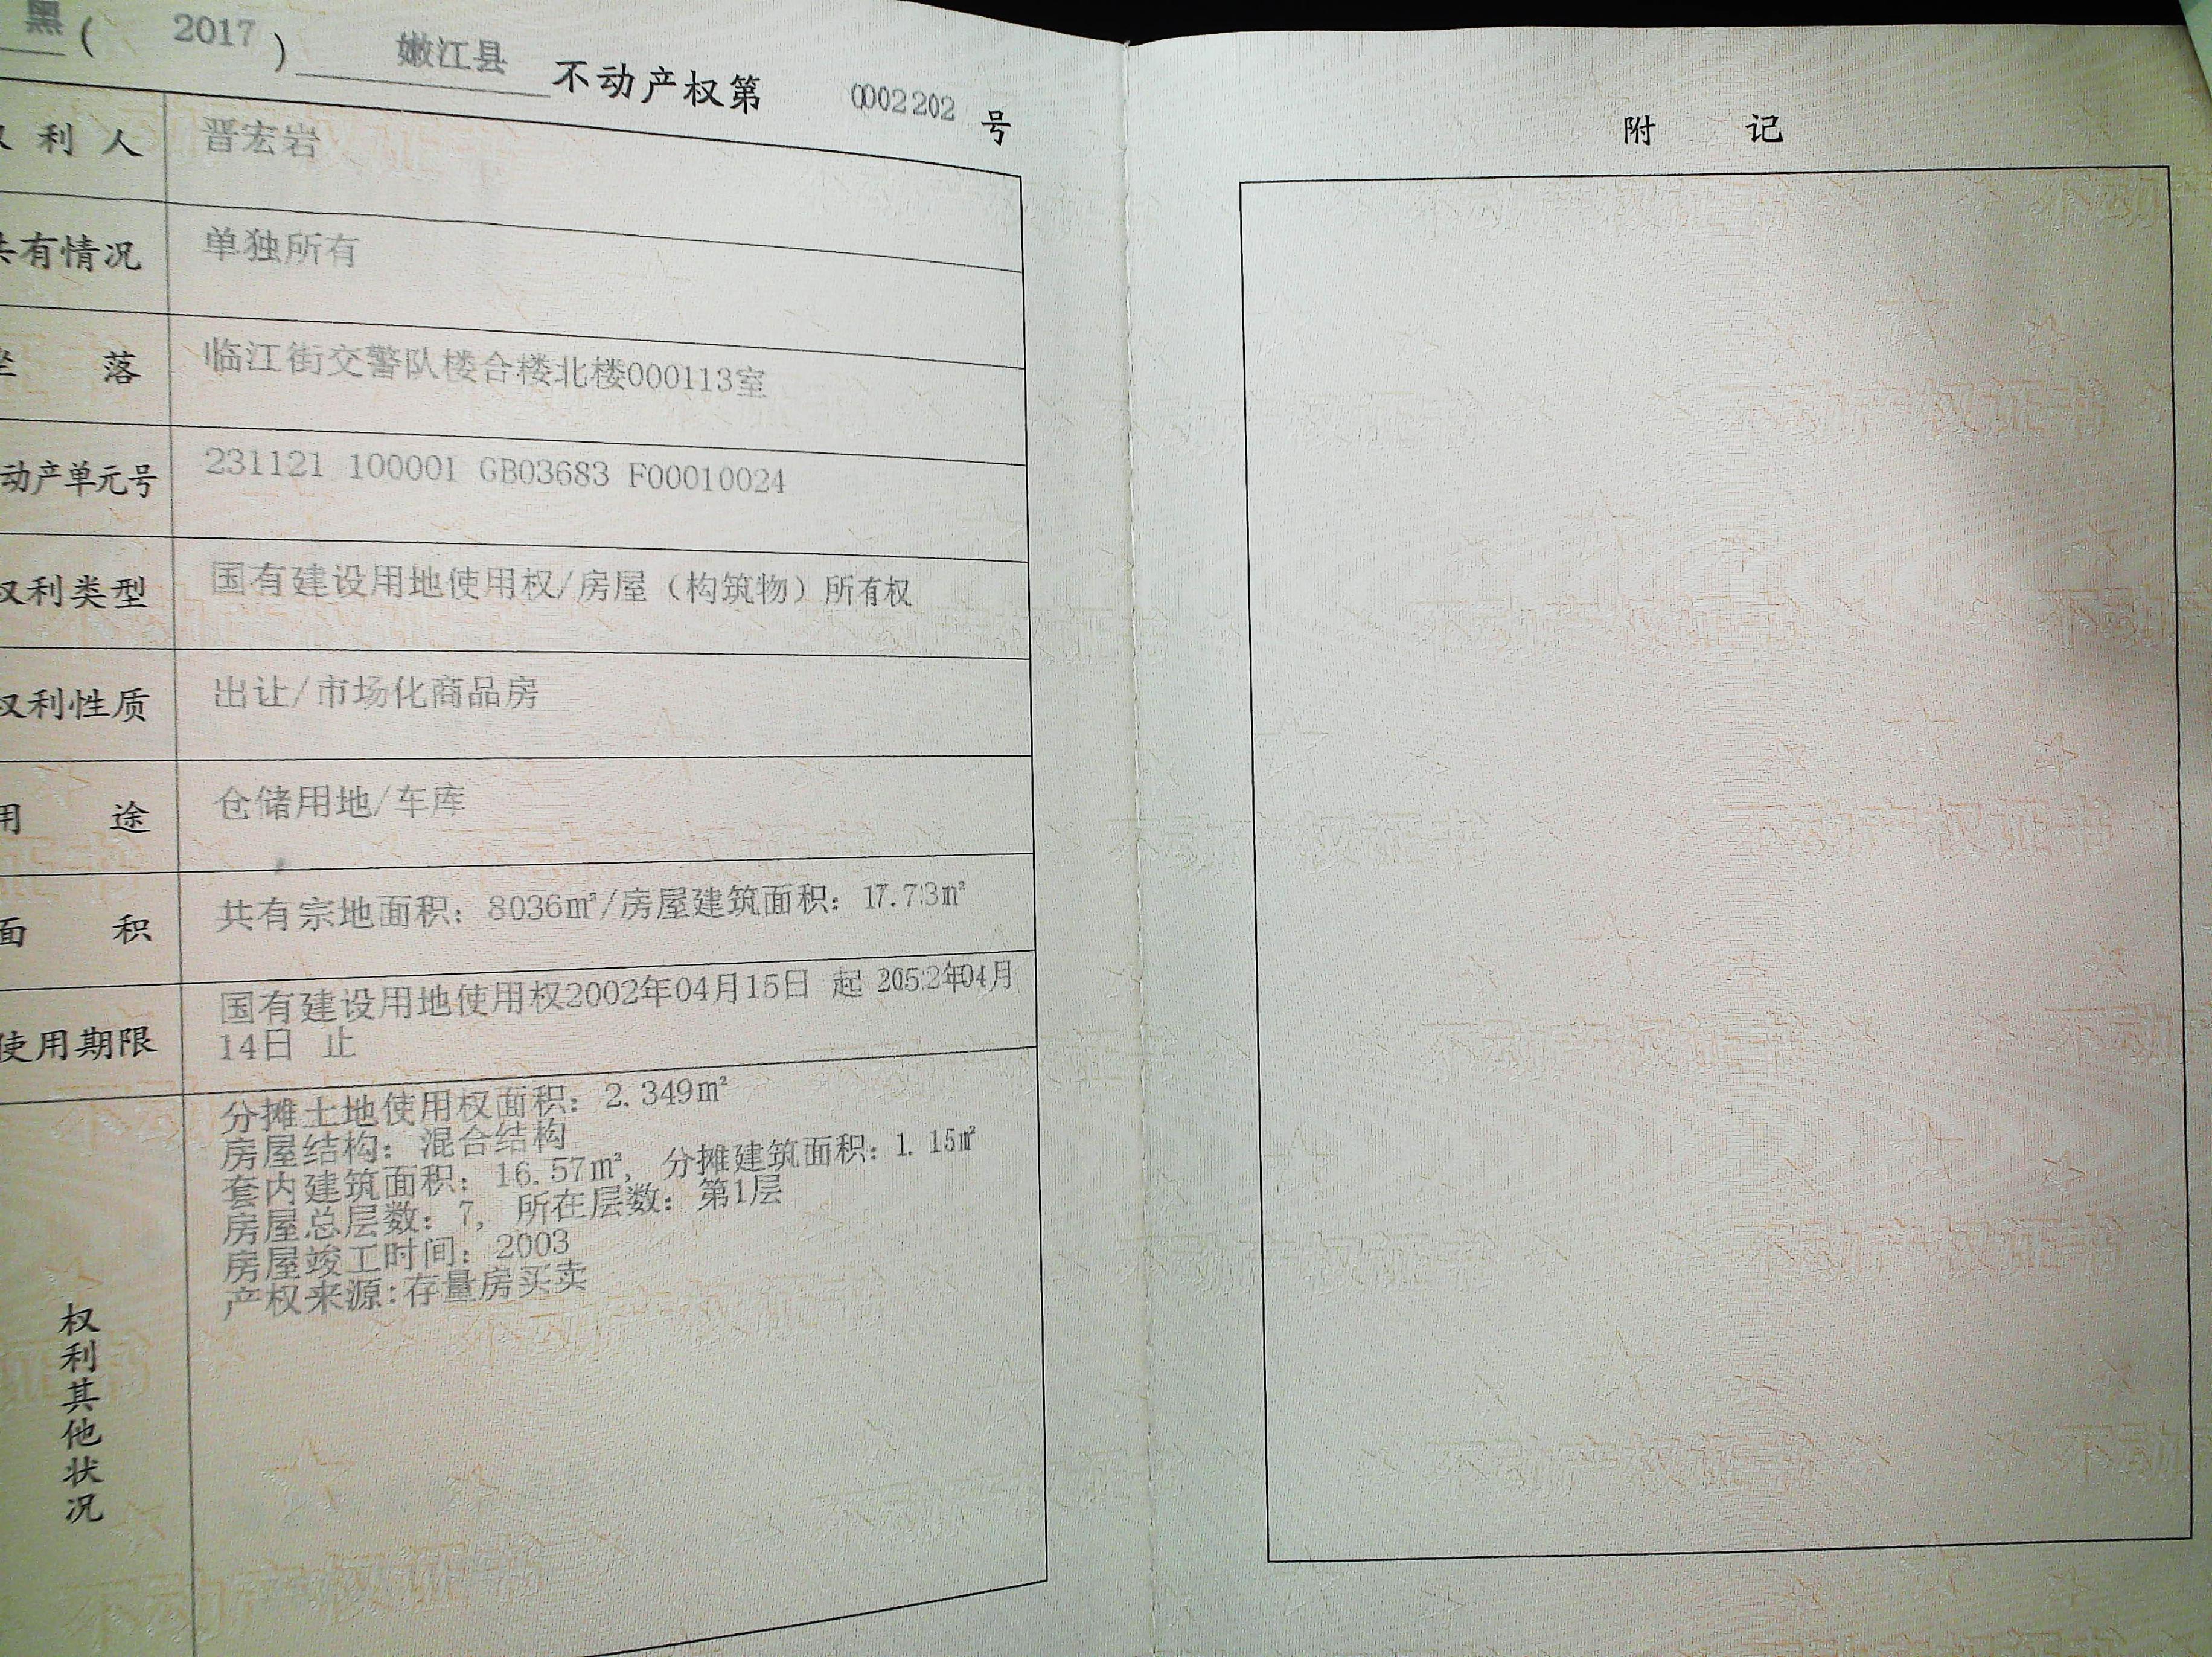 黑( 2017 ) 嫩江县 不动产权第 0002202 号
权利人 晋宏岩
共有情况 单独所有
坐落 临江街交警队楼合楼北楼000113室
动产单元号 231121 100001 GB03683 F00010024
权利类型 国有建设用地使用权/房屋（构筑物）所有权
权利性质 出让/市场化商品房
用途 仓储用地/车库
面积 共有宗地面积：8036㎡/房屋建筑面积：17.73㎡
使用期限 国有建设用地使用权2002年04月15日 起 2052年04月
14日 止
权利其他状况
分摊土地使用权面积：2.349㎡
房屋结构：混合结构
套内建筑面积：16.57㎡，分摊建筑面积：1.15㎡
房屋总层数：7，所在层数：第1层
房屋竣工时间：2003
产权来源:存量房买卖
附记